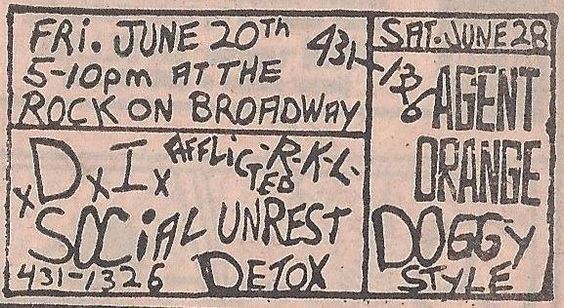 FRI. JUNE 20TH
5-10pm AT THE
ROCK ON BROADWAY
431-1326
xDxIx
AFFLICTED
-R-K-L-
SOCiAL UNREST
431-1326 DETOX
SAT. JUNE 28
AGENT
ORANGE
DOGGY
STYLE